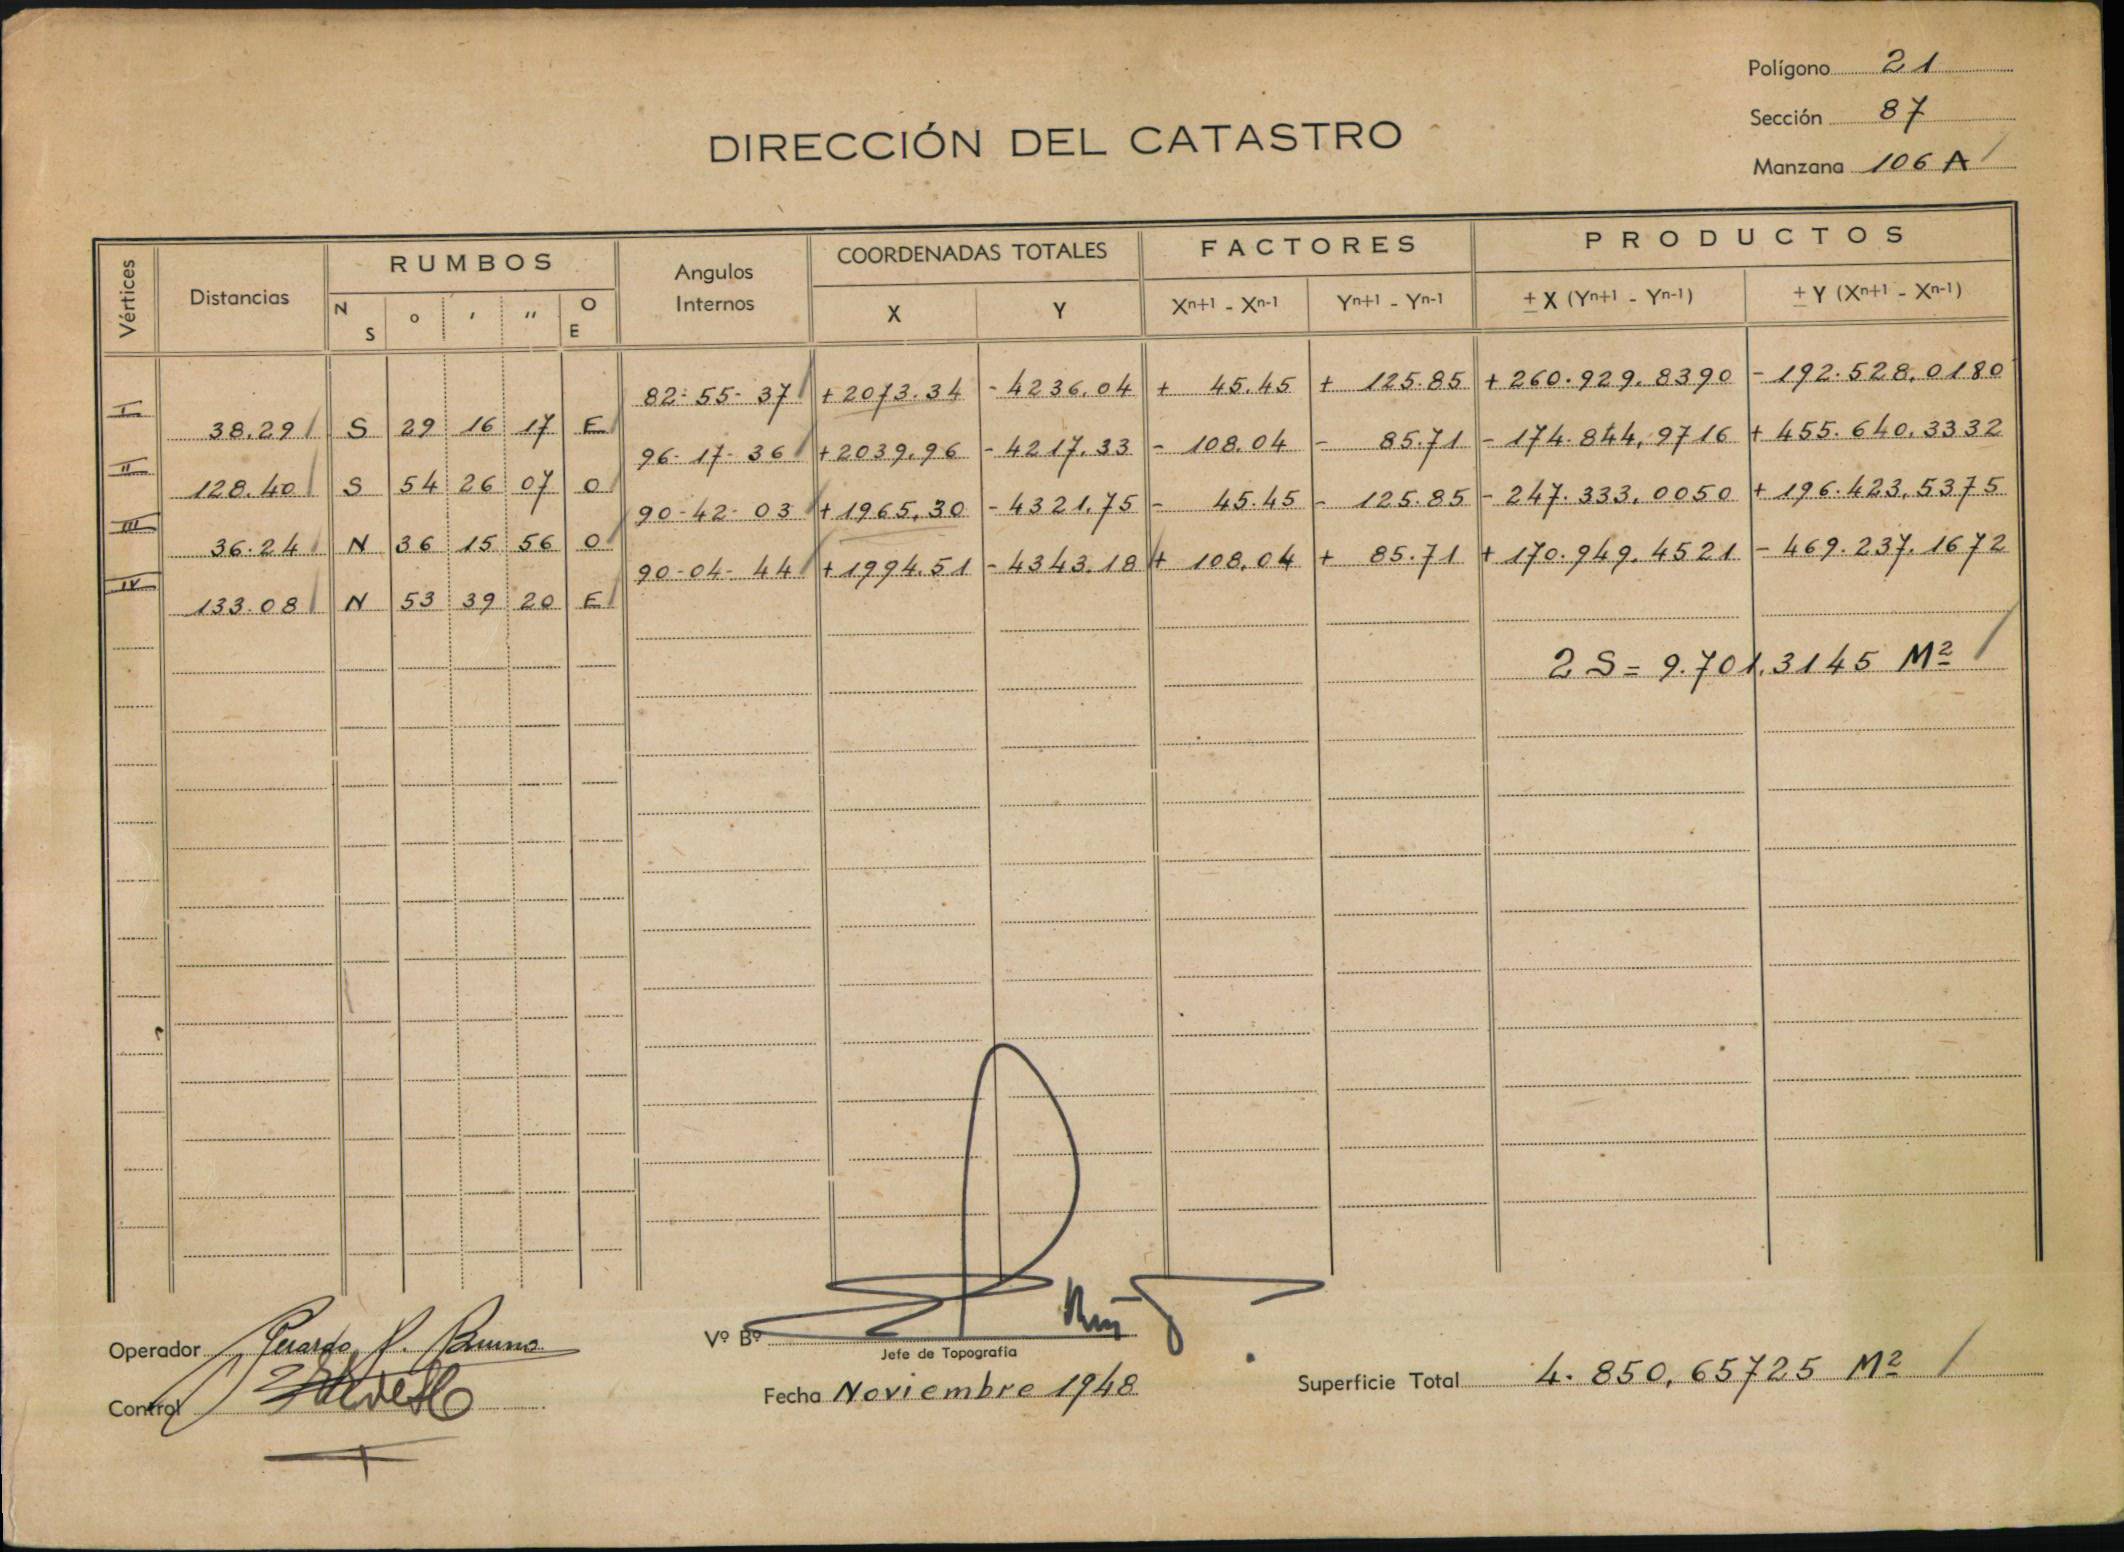 Polígono 21
Sección 87
Manzana 106 A
DIRECCIÓN DEL CATASTRO
Vértices Distancias RUMBOS Angulos Internos COORDENADAS TOTALES FACTORES PRODUCTOS
N S o ' '' O E X Y Xn+1 - Xn-1 Yn+1 - Yn-1 ± X (Yn+1 - Yn-1) ± Y (Xn+1 - Xn-1)
I 82-55-37 +2073.34 -4236.04 + 45.45 + 125.85 +260.929,8390 -192.528,0180
38.29 S 29 16 17 E
II 96-17-36 +2039.96 -4217.33 - 108.04 - 85.71 -174.844,9716 +455.640,3332
128.40 S 54 26 07 O
III 90-42-03 +1965,30 -4321.75 - 45.45 - 125.85 -247.333,0050 +196.423,5375
36.24 N 36 15 56 O
IV 90-04-44 +1994.51 -4343.18 + 108.04 + 85.71 +170.949,4521 -469.237,1672
133.08 N 53 39 20 E
2 S = 9.701,3145 M2
Operador Gerardo
Control
Vº Bº
Jefe de Topografía
Fecha Noviembre 1948
Superficie Total 4.850,65725 M2